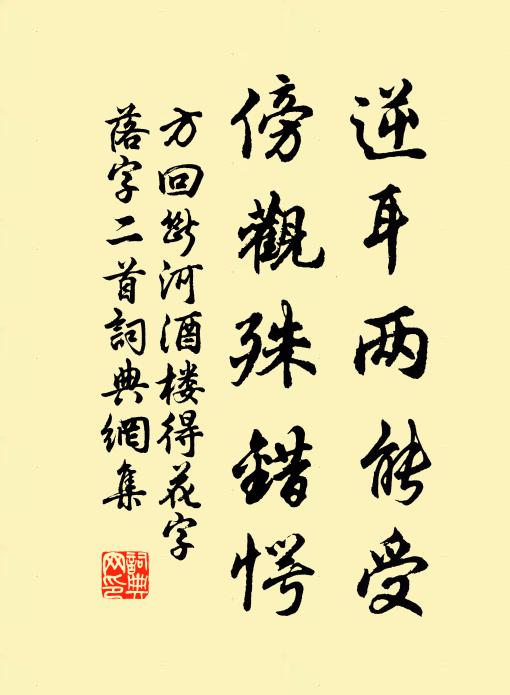 逆耳两能受
傍觀殊錯愕
方回断河酒楼得花字
落字二首詞典網集
詞典網印